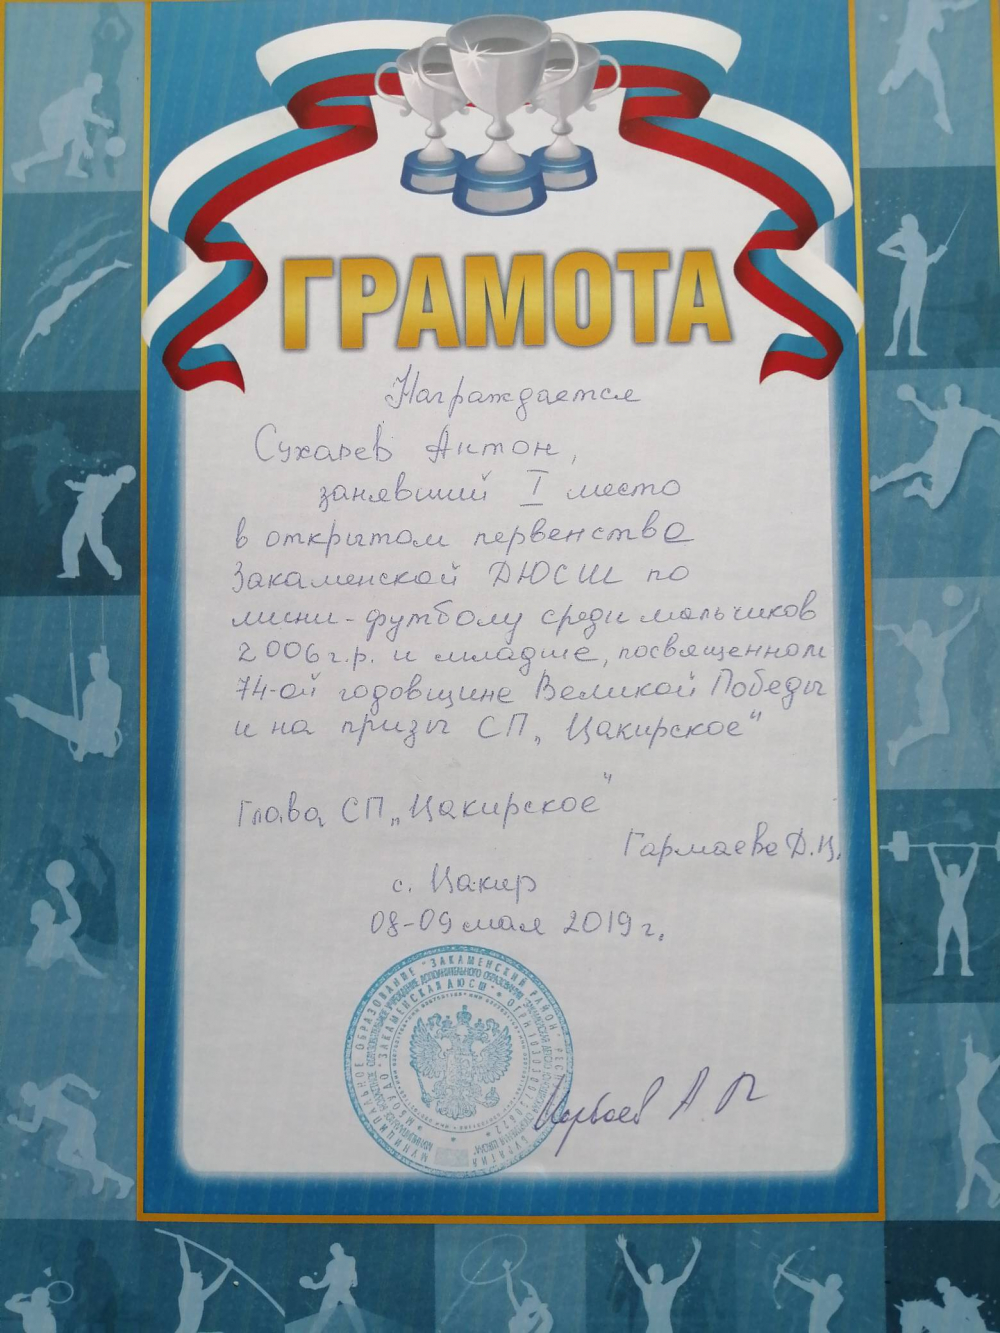 ГРАМОТА
Награждается
Сухарев Антон,
занявший I место
в открытом первенстве
Закаменской ДЮСШ по
мини-футболу среди мальчиков
2006 г.р. и младше, посвященном
74-ой годовщине Великой Победы
и на призы СП „Цакирское"
Глава СП „Цакирское"
Гармаева Д.Ц.
с. Цакир
08-09 мая 2019 г.
МУНИЦИПАЛЬНОЕ ОБРАЗОВАНИЕ "ЗАКАМЕНСКИЙ РАЙОН"
"ЗАКАМЕНСКАЯ ДЮСШ"
А. П